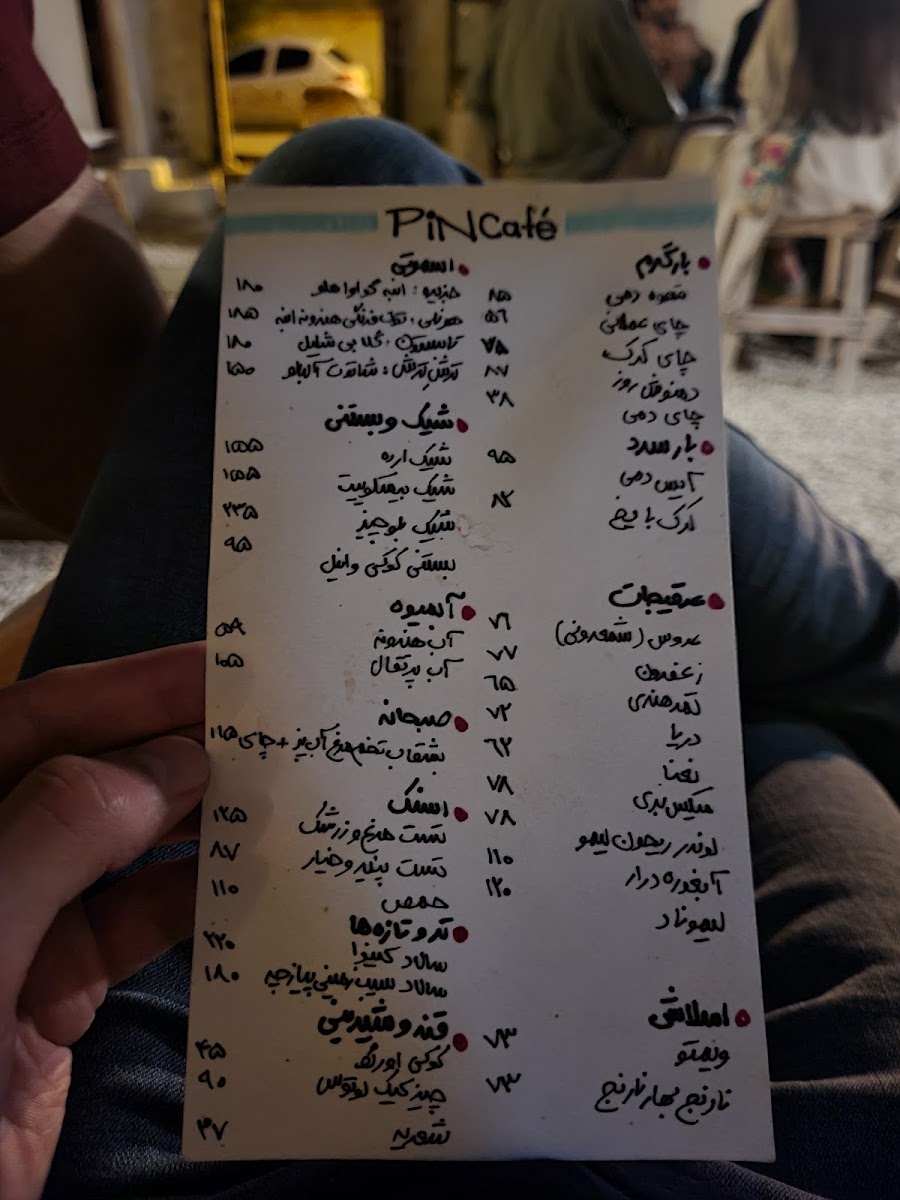 PiNCafé
بارگرم
قهوه دمی ۸۵
چای عمانی ۵۶
چای کرک ۷۵
دمنوش روز ۸۷
چای دمی ۳۸
بار سرد
آیس دمی ۹۵
کرک با یخ ۸۲
عرقیجات
عروس (شمعدونی) ۷۶
زعفرون ۷۷
تمرهندی ۶۵
دریا ۷۲
نعنا ۶۲
میکس بری ۷۸
لوندر ریحون لیمو ۷۸
آبغوره درار ۱۱۰
لیموناد ۱۲۰
املاشی
ویمتو ۷۳
نارنج بهارنارنج ۷۳
اسموتی
جزیره : انبه گواوا هلو ۱۸۰
هرنلی : توت فرنگی هندونه انبه ۱۸۵
تابستون : گلابی شلیل ۱۸۰
ترشِ تِرِش : شاتوت آلبالو ۱۵۰
شیک و بستنی
شیک ارده ۱۵۵
شیک بیسکوییت ۱۵۵
شیک بلوچیز ۲۳۵
بستنی کوکی وانیل ۹۵
آبمیوه
آب هندونه ۵۹
آب پرتقال ۱۰۵
صبحانه
بشقاب تخم مرغ آب پز + چای ۱۱۵
اسنک
تست مرغ و زرشک ۱۲۵
تست پنیر و خیار ۸۷
حمص ۱۱۰
تر و تازه ها
سالاد کینوا ۲۲۰
سالاد سیب زمینی پیازچه ۱۸۰
قند و شیرینی
کوکی اورنگ ۴۵
چیزکیک لوتوس ۹۰
شعریه ۴۷